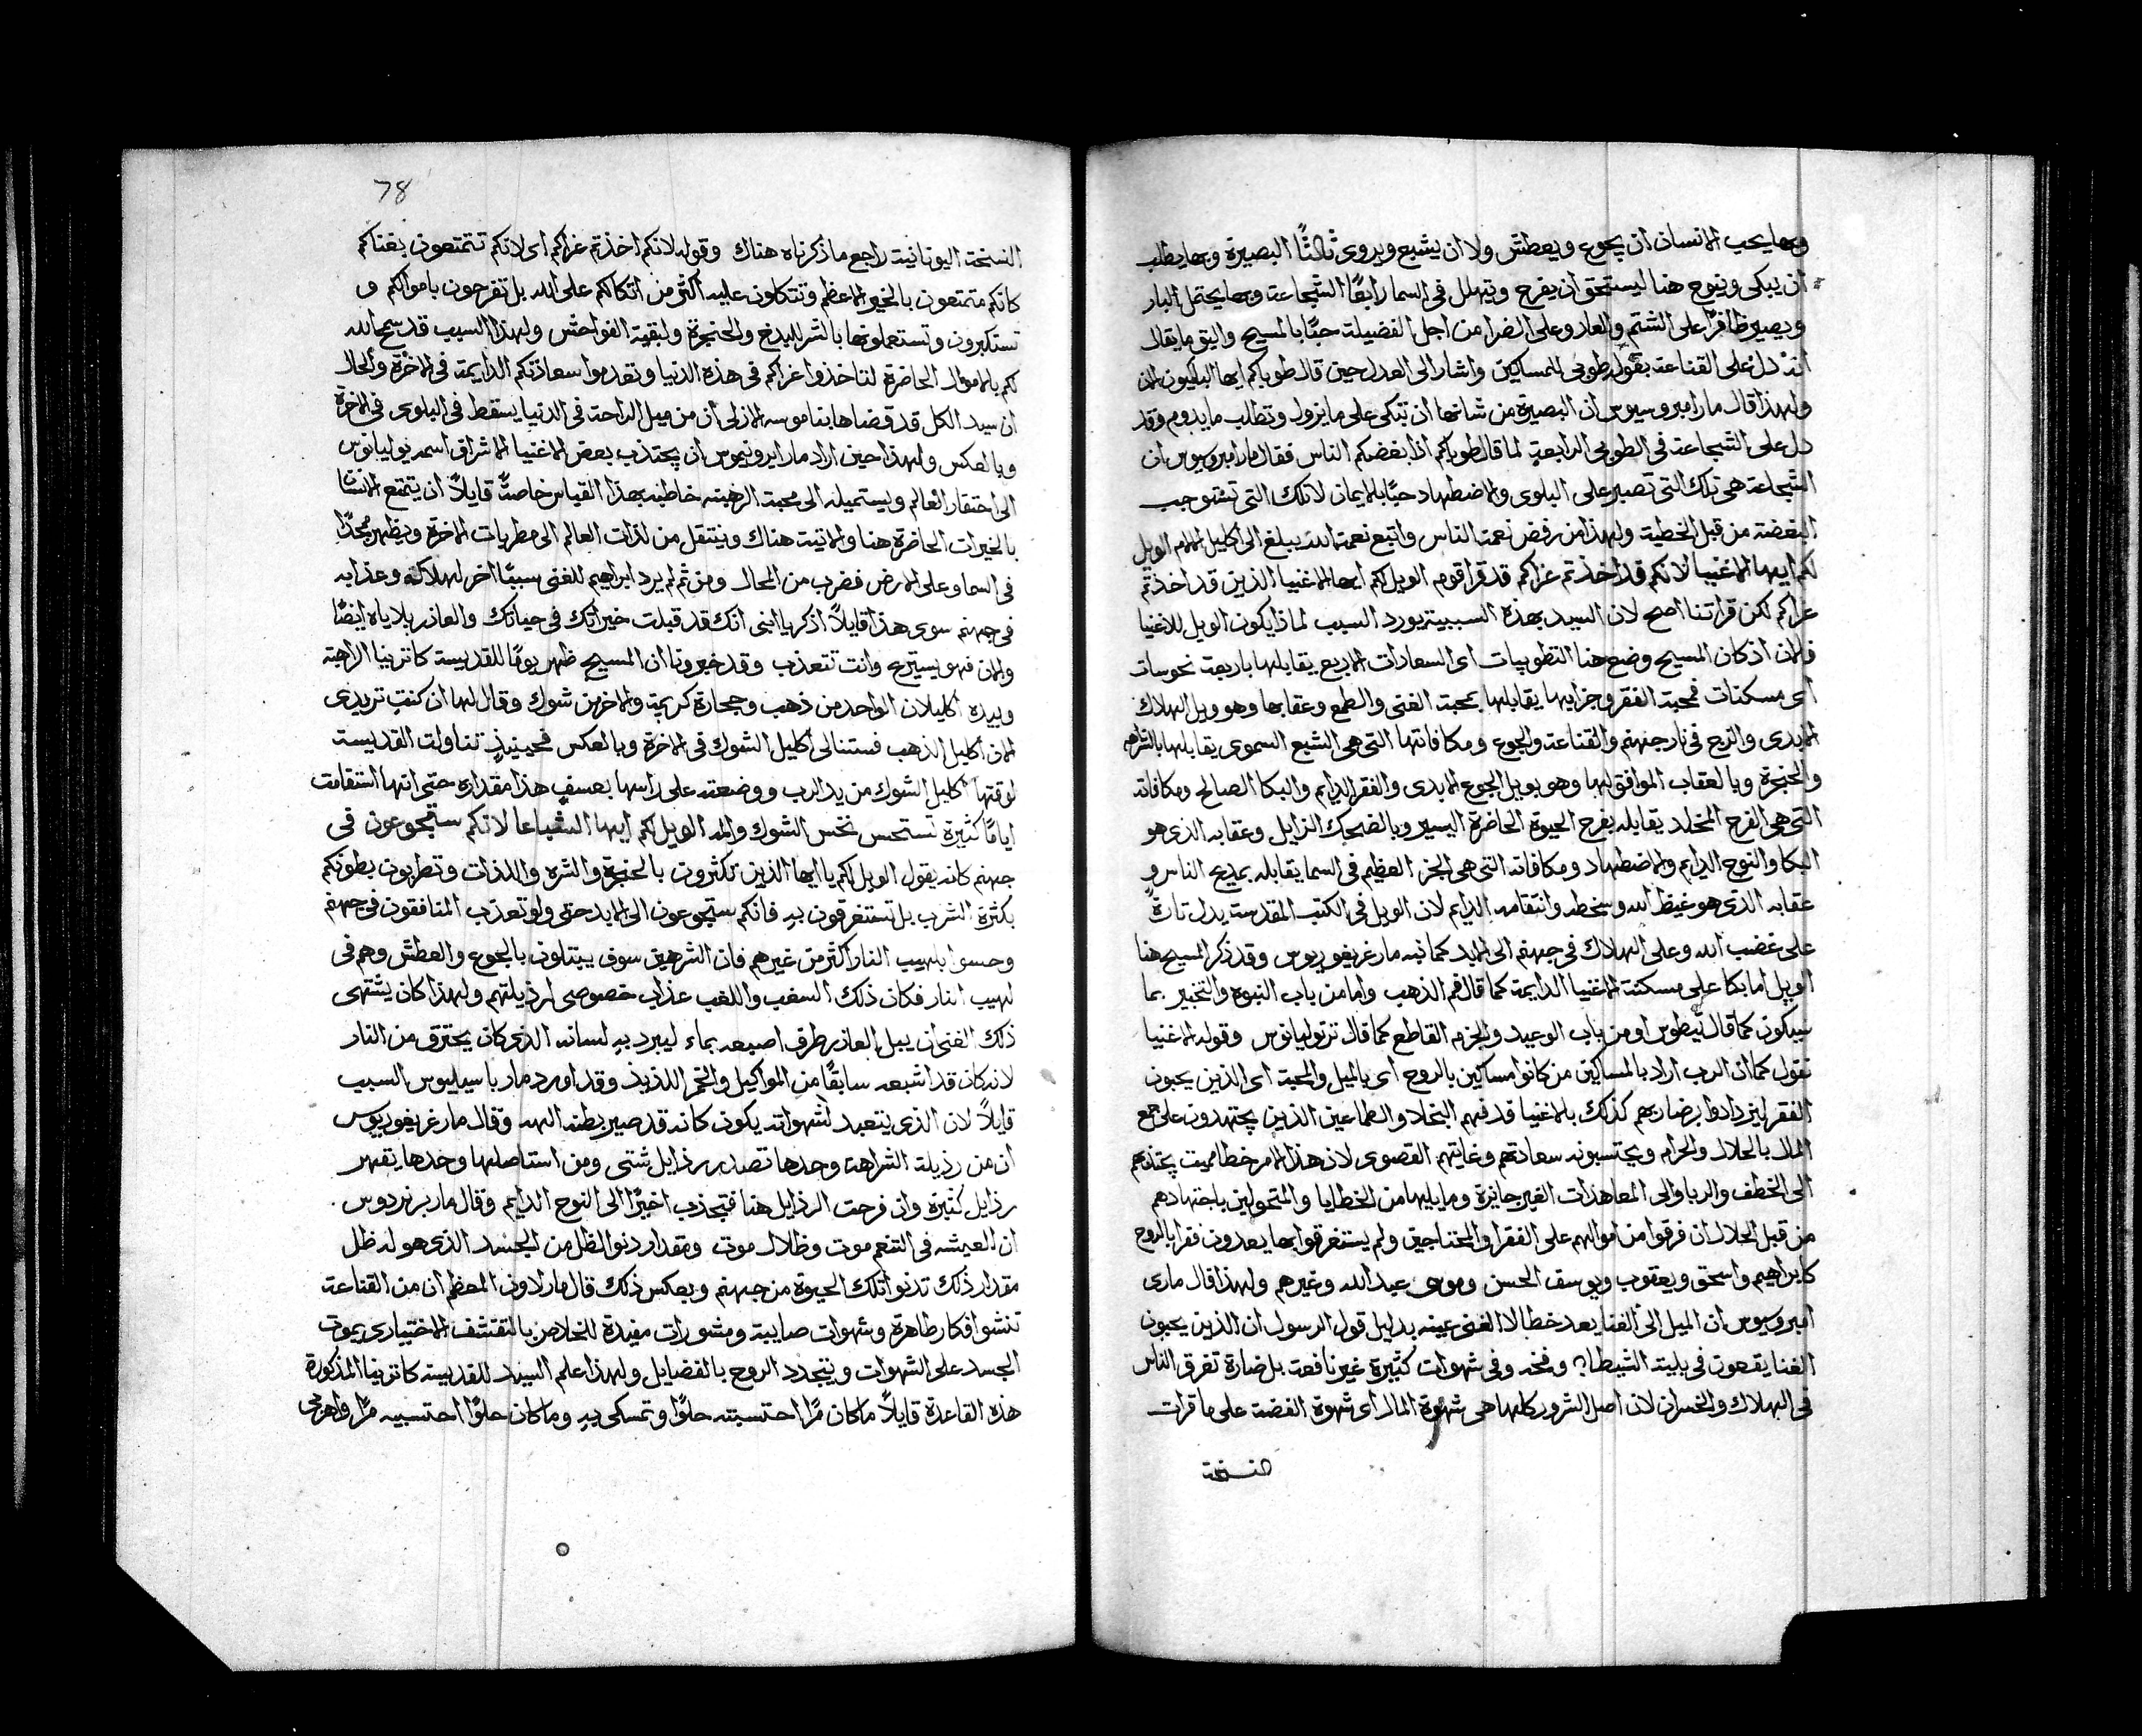 وبها يحب الانسان ان يجوع ويعطش ولا ان يشبع ويروى ثالثًا البصيرة وبها يطلب
ان يبكى وينوح هنا ليستحق ان يفرح ويتهلل فى السما رابعًا الشجاعة وبها يحتمل البار
ويصير ظافرًا على الشتم والعار وعلى الضرا من اجل الفضيلة حبًا بالمسيح واليق ما يقال
انه دل على القناعة بقوله طوبى للمساكين واشار الى العدل حين قال طوباكم ايها الباكيون الان
ولهذا قال مار امبروسيوس ان البصيرة من شانها ان تبكى على ما يزول وتطلب ما يدوم وقد
دل على الشجاعة فى الطوبى الرابعة لما قال طوباكم اذا بغضكم الناس فقال مار امبروسيوس ان
الشجاعة هى تلك التى تصبر على البلوى والاضطهاد حبًا بالايمان لا تلك التى تستوجب
البغضة من قبل الخطية ولهذا من رفض نعمة الناس واتبع نعمة الله يبلغ الى اكليل الالام الويل
لكم ايها الاغنيا لانكم قد اخذتم عزاكم قد قرا قوم الويل لكم ايها الاغنيا الذين قد اخذتم
عزاكم لكن قراتنا اصح لان السيد بهذه السببية يورد السبب لماذا يكون الويل للاغنيا
فالان اذ كان المسيح وضع هنا التطوبيات اى السعادات الاربع يقابلها باربعة نحوسات
اى مسكنات فمحبة الفقر وجزايها يقابلها بمحبة الغنى والطمع وعقابها وهو ويل الهلاك
الابدى والزج فى نار جهنم والقناعة والجوع ومكافاتها التى هى الشبع السموى يقابلها بالشراهه
والحنجرة وبالعقاب الموافق لها وهو بويل الجوع الابدى والفقر الدايم والبكا الصالح ومكافاته
التى هى الفرح المخلد يقابله بفرح الحيوة الحاضرة اليسير وبالضحك الزايل وعقابه الذى هو
البكا والنوح الدايم والاضطهاد ومكافاته التى هى الجزا العظيم فى السما يقابله بمديح الناس و
عقابه الذى هو غيظ الله وسخطه وانتقامه الدايم لان الويل فى الكتب المقدسة يدل تارةً
على غضب الله وعلى الهلاك فى جهنم الى الابد كما نبه مار غريغوريوس وقد ذكر المسيح هنا
الويل اما بكا على مسكنة الاغنيا الدايمة كما قال فم الذهب واما من باب النبوة والتخبير بما
سيكون كما قال تيطوس او من باب الوعيد والجزم القاطع كما قال ترتوليانوس وقوله الاغنيا
نقول كما ان الرب اراد بالمساكين من كانوا مساكين بالروح اى بالميل والمحبة اى الذين يحبون
الفقر ليزدادوا برضا ربهم كذلك بالاغنيا قد فهم البخلا والطماعين الذين يجتهدون على جمع
المال بالحلال والحرام ويحتسبونه سعادتهم وغايتهم القصوى لان هذا الامر خطا مميت يجتذبهم
الى الخطف والربا والى المعاهدات الغير جايزة وما يليها من الخطايا والمتمولين باجتهادهم
من قبل الحلال ان فرقوا من اموالهم على الفقرا والمحتاجين ولم يستغرقوا بها يعدون فقرا بالروح
كابراهيم واسحق ويعقوب ويوسف الحسن وموسى عبد الله وغيرهم ولهذا قال مارى
امبروسيوس ان الميل الى الغنا يعد خطا لا الغنى عينه بدليل قول الرسول ان الذين يحبون
الغنا يقعون فى بلية الشيطان وفخه وفى شهوات كثيرة غير نافعة بل ضارة تغرق الناس
فى الهلاك والخسران لان اصل الشرور كلها هى شهوة المال اى شهوة الفضة على ما قرات
النسخة
78
النسخة اليونانية راجع ما ذكرناه هناك وقوله لانكم اخذتم عزاكم اى لانكم تتمتعون بغناكم
كانكم متمتعون بالخير الاعظم وتتكلون عليه اكثر من اتكالكم على الله بل تفرحون باموالكم و
تستكبرون وتستعملونها بالشر للبدخ والحنجرة ولبقية الفواحش ولهذا السبب قد سمح الله
لكم بالاموال الحاضرة لتاخذوا عزاكم فى هذه الدنيا وتعدموا سعادتكم الدايمة فى الاخرة والحال
ان سيد الكل قد قضاها بناموسه الازلى ان من ميل الراحة فى الدنيا يسقط فى البلوى فى الاخرة
وبالعكس ولهذا حين اراد مار ايرونيموس ان يجتذب بعض الاغنيا الاشراق اسمه يوليانوس
الى احتقار العالم ويستميله الى محبة الرهبنه خاطبه بهذا القياس خاصةً قايلاً ان يتمتع الانسان
بالخيرات الحاضرة هنا والاتية هناك وينتقل من لذات العالم الى مطربات الاخرة ويظهر مجدًا
فى السما وعلى الارض فضرب من المحال ومن ثم لم يرد ابراهيم للغنى سببًا اخر لهلاكه وعذابه
فى جهنم سوى هذا قايلاً اذكر يا ابنى انك قد قبلت خيراتك فى حياتك والعازر بلاياه ايضًا
والان فهو يستريح وانت تتعذب وقد خبرونا ان المسيح ظهر يومًا للقديسة كاترينا الراهبة
وبيده اكليلان الواحد من ذهب وحجارة كريمة والاخر من شوك وقال لها ان كنتِ تريدى
الان اكليل الذهب فستنالى اكليل الشوك فى الاخرة وبالعكس فحينيذٍ تناولت القديسة
لوقتها اكليل الشوك من يد الرب ووضعته على راسها بعسفٍ هذا مقداره حتى انها استقامت
ايامًا كثيرة تستحس نخس الشوك والمه الويل لكم ايها الشباعا لانكم ستجوعون فى
جهنم كانه يقول الويل لكم يا ايها الذين تكثرون بالحنجرة والشره واللذات وتطربون بطونكم
بكثرة الشرب بل تستغرقون به فانكم ستجوعون الى الابد حتى ولو تعذب المنافقون فى جهنم
وحسوا بلهيب النار اكثر من غيرهم فان الشرهين سوف يبتلون بالجوع والعطش وهم فى
لهيب النار فكان ذلك السغب واللغب عذاب خصوصى لرذيلتهم ولهذا كان يشتهى
ذلك الغنى ان يبل العازر طرف اصبعه بماء ليبرد به لسانه الذى كان يحترق من النار
لانه كان قد اشبعه سابقًا من المواكيل والخمر اللذيذ وقد اورد مار باسيليوس السبب
قايلاً لان الذى يتعبد لشهواته يكون كانه قد صير بطنه الهه وقال مار غريغوريوس
ان من رذيلة الشراهة وحدها تصدر رذايل شتى ومن استاصلها وحدها يقهر
رذايل كثيرة وان فرحت الرذايل هنا فتجذب اخيرًا الى النوح الدايم وقال مار برنردوس
ان العيشه فى التنعم موت وظلال موت وبمقدار دنو الظل من الجسد الذى هو له ظل
مقدار ذلك تدنو تلك الحيوة من جهنم وبعكس ذلك قال مار لاون المعظم ان من القناعة
تنشو افكار طاهرة وشهوات صايبة ومشورات مفيدة للخلاص بالتقشف الاختيارى يموت
الجسد على الشهوات ويتجدد الروح بالفضايل ولهذا علم السيد للقديسة كاترينا المذكورة
هذه القاعدة قايلاً ما كان مرًا احتسبته حلوًا وتمسكى به وما كان حلوًا احتسبيه مرًا واهربى